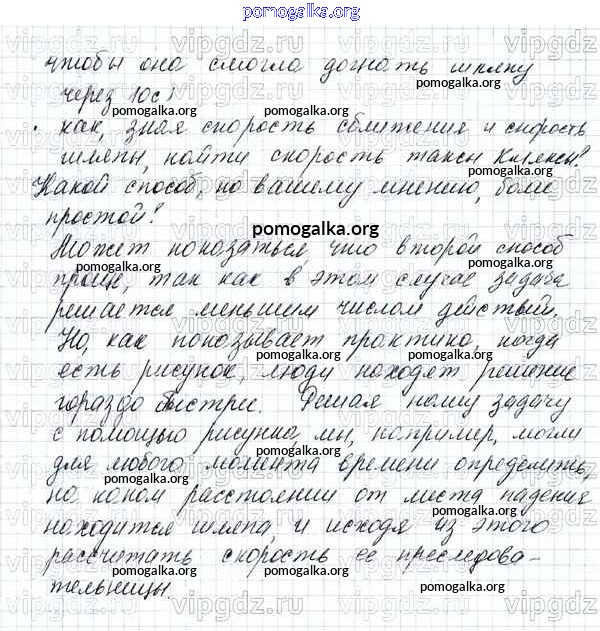 pomogalka.org
чтобы она смогла догнать шляпу
через 10с;
• как, зная скорость сближения и скорость
шляпы, найти скорость таксы Кляксы?
Какой способ, по вашему мнению, более
простой?
Может показаться, что второй способ
проще, так как в этом случае задача
решается меньшим числом действий.
Но, как показывает практика, когда
есть рисунок, люди находят решение
гораздо быстрее. Решая нашу задачу
с помощью рисунка, мы, например, могли
для любого момента времени определить,
на каком расстоянии от места падения
находится шляпа, и исходя из этого
рассчитать скорость ее преследова-
тельницы.